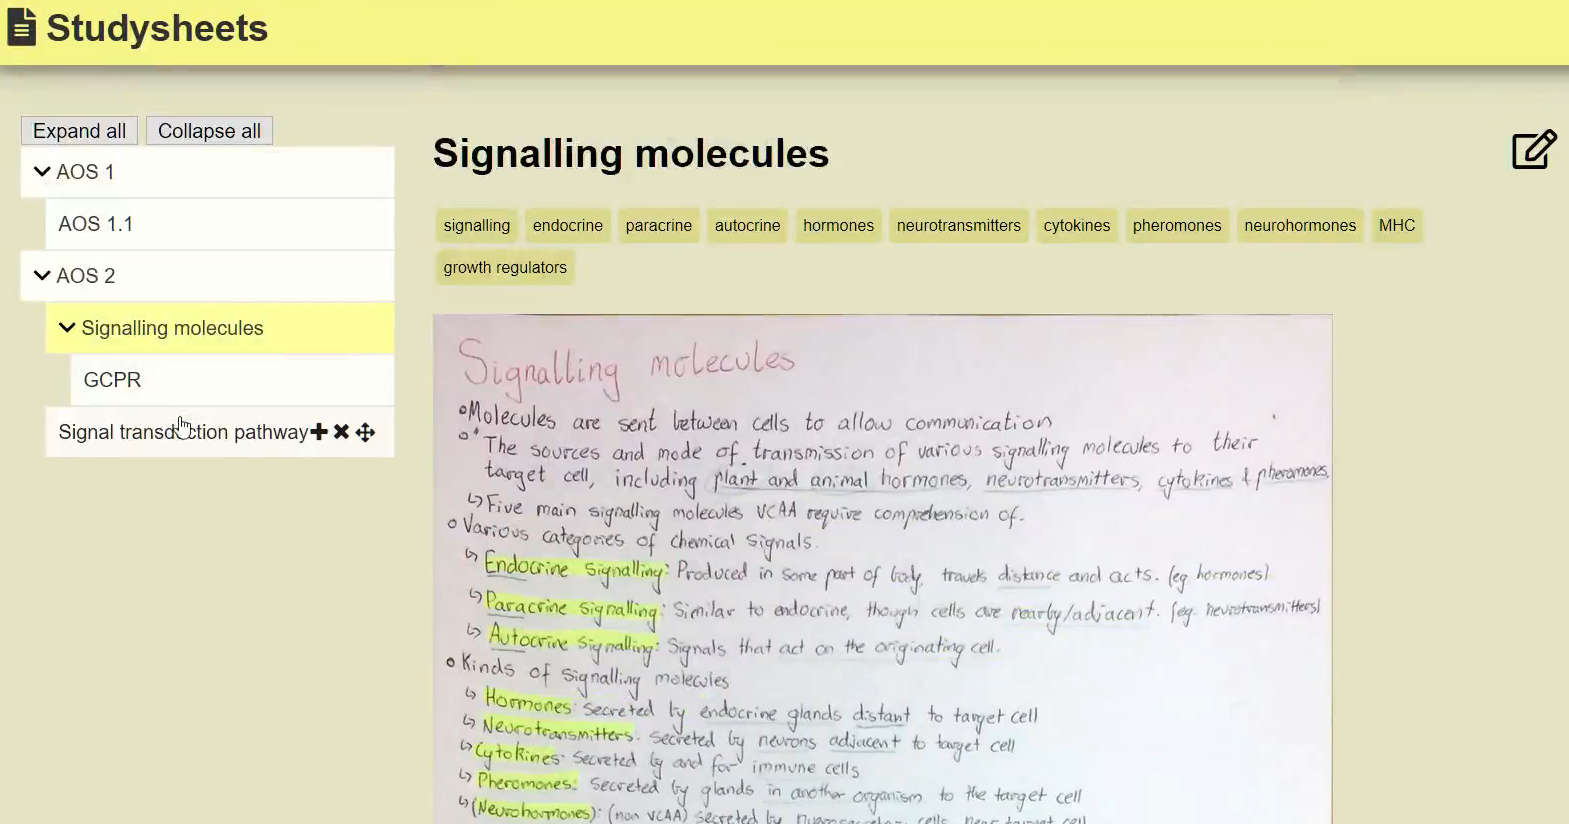 Studysheets
Expand all
Collapse all
AOS 1
AOS 1.1
AOS 2
Signalling molecules
GCPR
Signal transduction pathway
Signalling molecules
signalling
endocrine
paracrine
autocrine
hormones
neurotransmitters
cytokines
pheromones
neurohormones
MHC
growth regulators
Signalling molecules
Molecules are sent between cells to allow communication
The sources and mode of transmission of various signalling molecules to their
target cell, including plant and animal hormones, neurotransmitters, cytokines & pheromones.
↳ Five main signalling molecules VCAA require comprehension of.
Various categories of chemical signals.
↳ Endocrine signalling: Produced in some part of body, travels distance and acts. (eg hormones)
↳ Paracrine signalling: Similar to endocrine, though cells are nearby/adjacent. (eg. neurotransmitters)
↳ Autocrine signalling: Signals that act on the originating cell.
Kinds of signalling molecules
↳ Hormones: secreted by endocrine glands distant to target cell
↳ Neurotransmitters: secreted by neurons adjacent to target cell
↳ Cytokines: secreted by and for immune cells
↳ Pheromones: secreted by glands in another organism to the target cell
↳ (Neurohormones): (non VCAA) secreted by